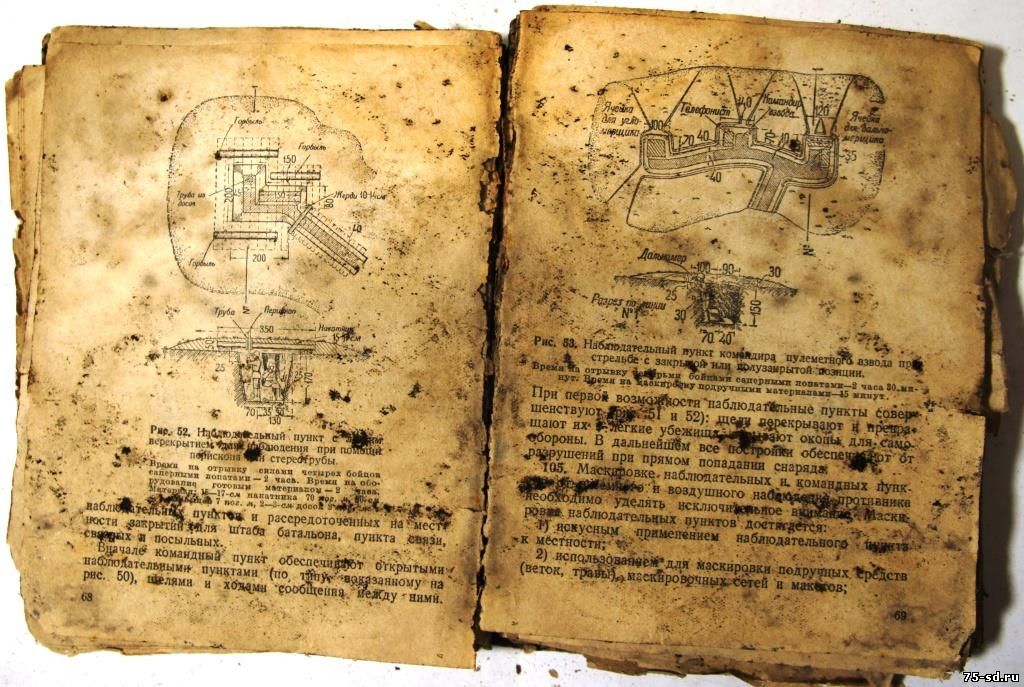 Горбыль
Горбыль
150
Труба из
досок
200
150
80
Жерди 10-14см
40
Горбыль
200
N
Труба
Перископ
350
Накатник
25
25
170
70 35 50
130
Рис. 52. Наблюдательный пункт с
перекрытием для наблюдения при помощи
перископа или стереотрубы.
Время на отрывку силами четырех бойцов
саперными лопатами — 2 часа. Время на обо-
рудование готовым материалом — 2 часа.
Материал: 15—17-см накатника 70 пог. м,
7 пог. м, 2—3-см досок
наблюдательных пунктов и рассредоточенных на мест-
ности закрытий для штаба батальона, пункта связи,
связных и посыльных.
Вначале командный пункт обеспечивают открытыми
наблюдательными пунктами (по типу, показанному на
рис. 50), щелями и ходами сообщения между ними.
68
Ячейка
для угло-
мерщика
Телефонист
Командир
взвода
Ячейка
для дально-
мерщика
100
120
40
140
10
120
35
40
N°
Дальномер
100 90
30
25
Разрез по линии
N°
30
150
70 40
Рис. 53. Наблюдательный пункт командира пулеметного взвода при
стрельбе с закрытой или полузакрытой позиции.
Время на отрывку четырьмя бойцами саперными лопатами—2 часа 30 ми-
нут. Время на маскировку подручными материалами—15 минут.
При первой возможности наблюдательные пункты совер-
шенствуют (рис. 51 и 52): щели перекрывают и превра-
щают их в легкие убежища, отрывают окопы для само-
обороны. В дальнейшем все постройки обеспечивают от
разрушений при прямом попадании снаряда.
105. Маскировке наблюдательных и командных пунк-
и воздушного наблюдения противника
необходимо уделять исключительное внимание. Маски-
ровка наблюдательных пунктов достигается:
1) искусным применением наблюдательного пункта
к местности;
2) использованием для маскировки подручных средств
(веток, травы), маскировочных сетей и макетов;
69
75-sd.ru